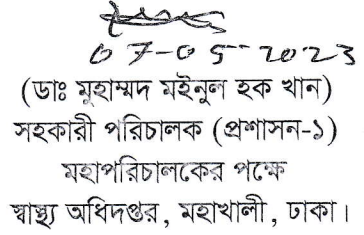 07-05-2023
(ডাঃ মুহাম্মদ মইনুল হক খান)
সহকারী পরিচালক (প্রশাসন-১)
মহাপরিচালকের পক্ষে
স্বাস্থ্য অধিদপ্তর, মহাখালী, ঢাকা।